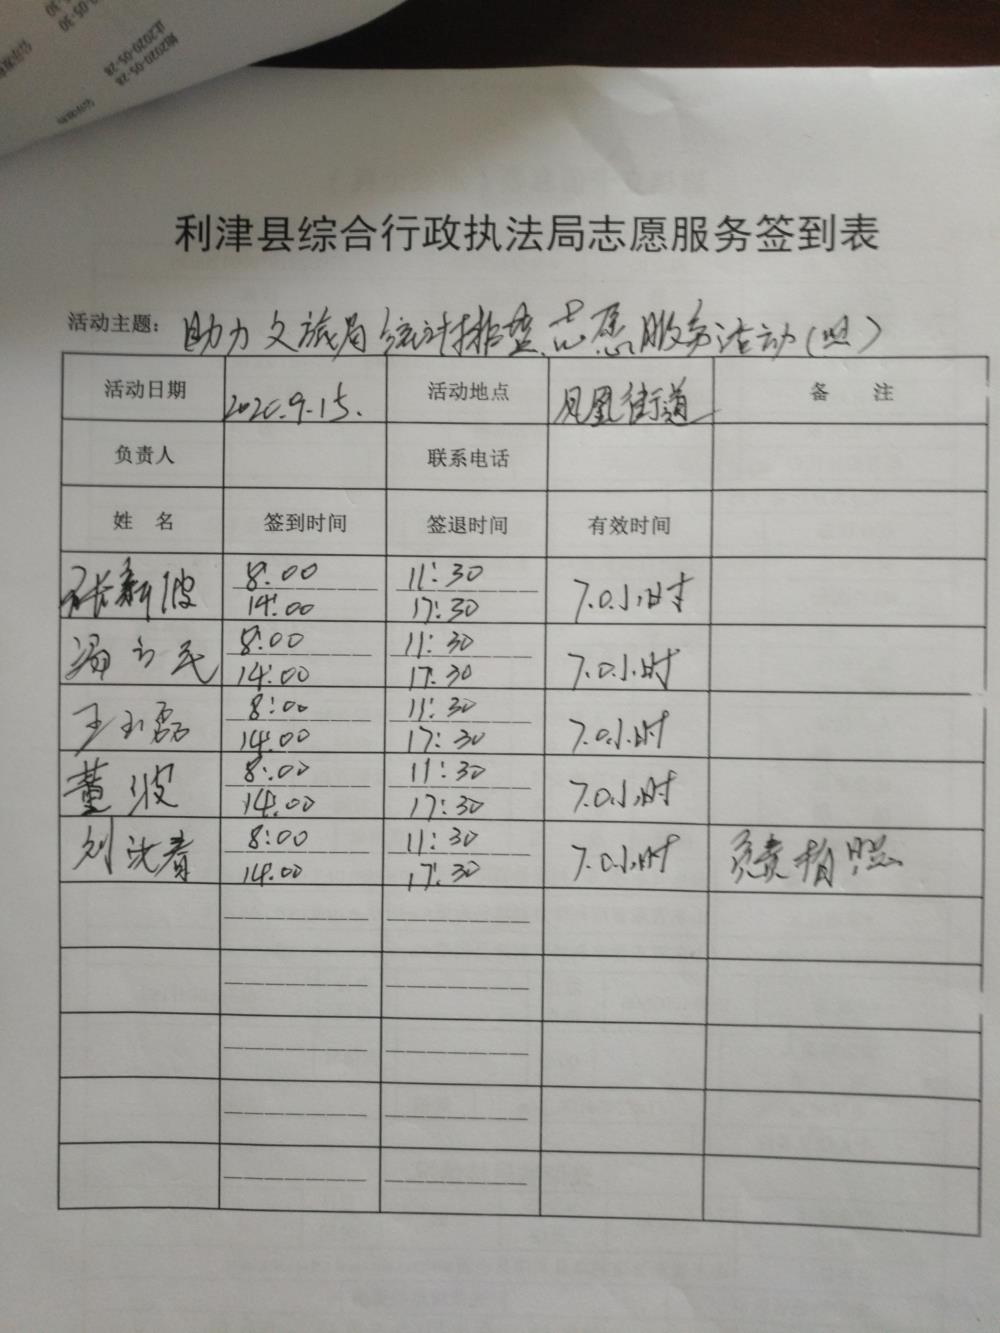 利津县综合行政执法局志愿服务签到表
活动主题：助力文旅局统计排查志愿服务活动（四）
活动日期 2020.9.15. 活动地点 凤凰街道 备 注
负责人 联系电话
姓 名 签到时间 签退时间 有效时间
张新波 8:00 11:30 7.0小时
14:00 17:30
冯立民 8:00 11:30 7.0小时
14:00 17:30
王玉磊 8:00 11:30 7.0小时
14:00 17:30
董波 8:00 11:30 7.0小时
14:00 17:30
刘 8:00 11:30 7.0小时 负责拍照
14:00 17:30
2020-05-28
2020-05-28